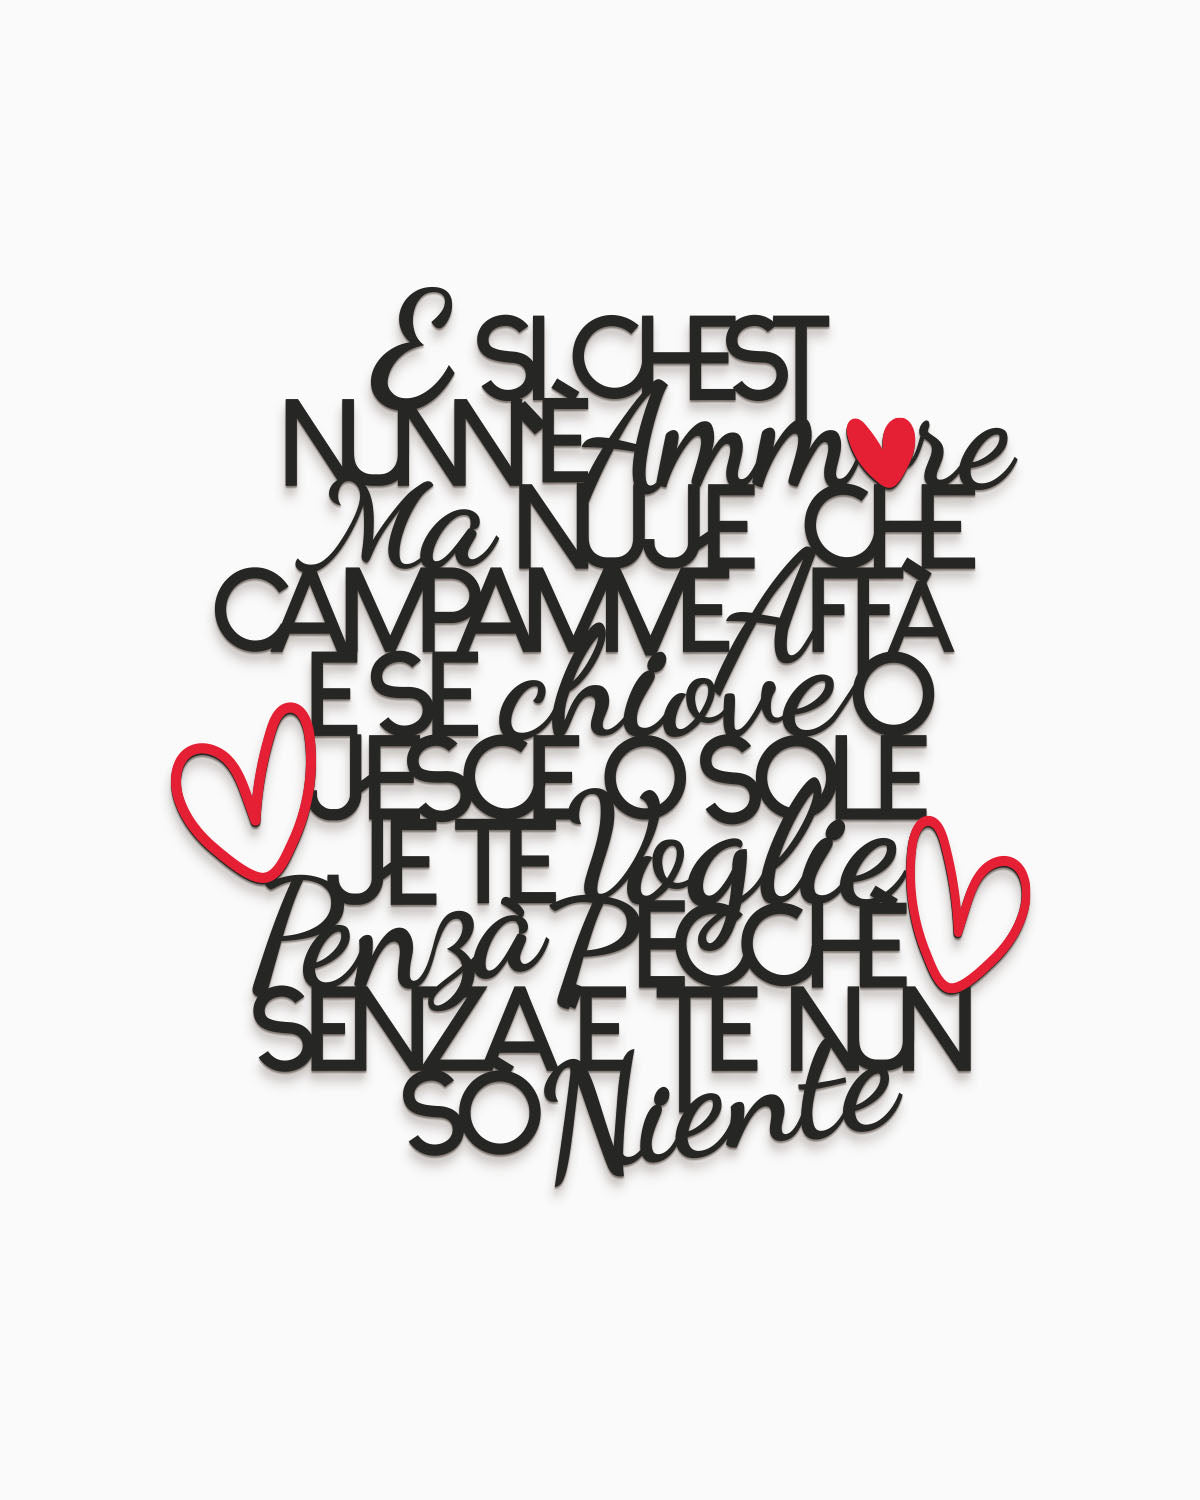 E SI CHEST
NUNN'È Ammore
Ma NUJE CHE
CAMPAMME AFFÀ
E SE chiove O
JESCE O SOLE
JE TE Voglie
Penzà PECCHÈ
SENZA E TE NUN
SO' Niente